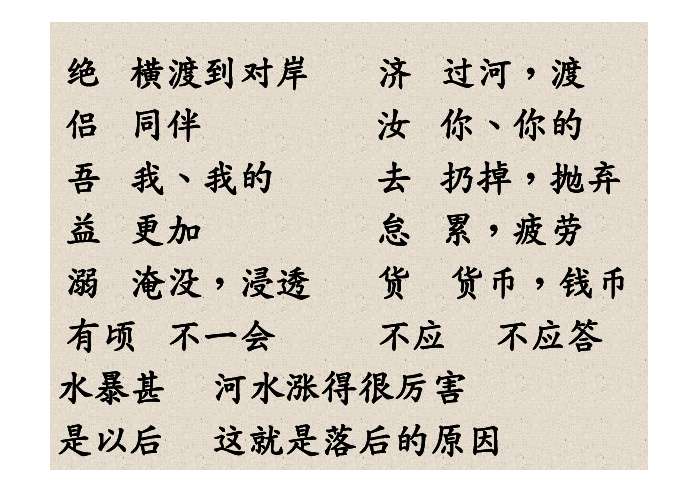 绝 横渡到对岸 济 过河，渡
侣 同伴 汝 你、你的
吾 我、我的 去 扔掉，抛弃
益 更加 怠 累，疲劳
溺 淹没，浸透 货 货币，钱币
有顷 不一会 不应 不应答
水暴甚 河水涨得很厉害
是以后 这就是落后的原因